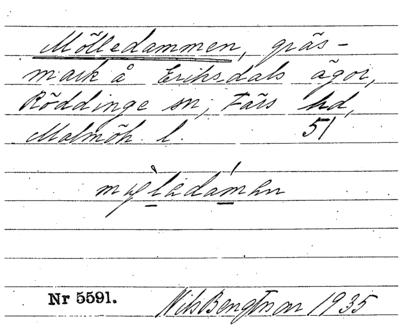 Mölledammen, gräs-
mark å Eriksdals ägor,
Röddinge sn, Färs hd,
Malmöh. l. 51
Nr 5591. Nils Bengtsson 1935